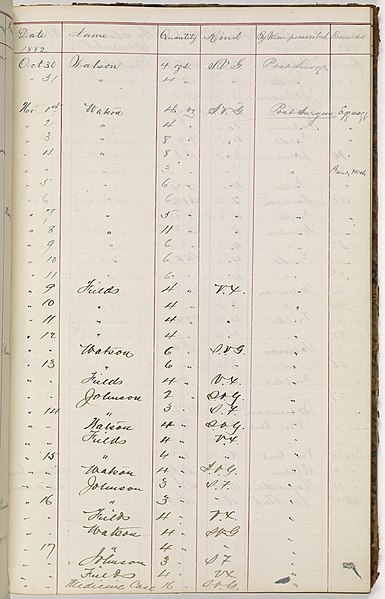 Date Name Quantity Kind By Whom prescribed Remarks
1882
Oct 30 Watson 4 ozs S.V.G. Post Surg
" 31 " 4 " " "
Nov 1st Watson 4 oz S.V.G. Post Surgeon
" 2 " 4 " " "
" 3 " 8 " " "
" 4 " 8 " " "
" 3 " "
" 5 " 6 " " "
" 6 " 6 " " "
" 7 " 5 " " "
" 8 " 11 " " "
" 9 " 6 " " "
" 10 " 6 " " "
" 11 " 6 " " "
" 9 Fields 4 " V.X. "
" 10 " 4 " " "
" 11 " 4 " " "
" 12 " 4 " " "
" Watson 6 " S.V.G. "
" 13 " 6 " " "
" Fields 4 " V.X. "
Johnson 2 " S.V.G. "
" 14 " 3 " S.F. "
" Watson 4 " S.V.G. "
Fields 4 " V.X. "
" 15 " 4 " " "
" Watson 4 " S.V.G. "
Johnson 3 " S.F. "
" 16 " 3 " " "
" Fields 4 " V.X. "
" Watson 4 " S.V.G. "
" 17 " 4 " " "
" Johnson 3 " S.F. "
" Fields 4 " V.X. "
Medicine Case 16 " S.V.G. "